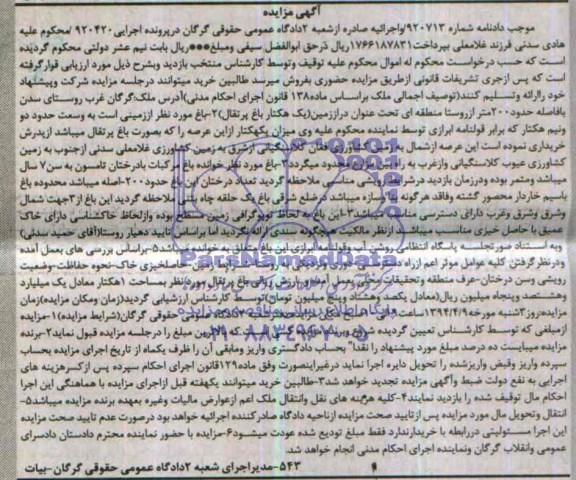 آگهی مزایده
موجب دادنامه شماره ۹۲۰۷۱۳/واجرائیه صادره ازشعبه ۲دادگاه عمومی حقوقی گرگان درپرونده اجرایی۹۲۰۴۲۰ /محکوم علیه
هادی سدنی فرزند غلامعلی بپرداخت۱۷۶۶۱۸۷۸۳۱ریال درحق ابوالفضل سیفی ومبلغ ریال بابت نیم عشر دولتی محکوم گردیده
است که حسب درخواست محکوم له اموال محکوم علیه توقیف وتوسط کارشناس منتخب بازدید وبشرح ذیل مورد ارزیابی قرارگرفته
است که پس ازجری تشریفات قانونی ازطریق مزایده حضوری بفروش میرسد طالبین خرید میتوانند درجلسه مزایده شرکت وپیشنهاد
خود راارائه وتسلیم کنند(توصیف اجمالی ملک براساس ماده۱۳۸ قانون اجرای احکام مدنی)آدرس ملک:گرگان غرب روستای سدن
بافاصله حدود۲۰۰متر ازروستا منطقه ای تحت عنوان درازمین(یک هکتار باغ پرتقال)۲-باغ مورد نظر اززمینی است به وسعت حدود دو
ونیم هکتار که برابر قولنامه ابرازی توسط نماینده محکوم علیه وی میزان یکهکتار ازاین عرصه را که بصورت باغ پرتقال میباشد ازپدرش
خریداری نموده است این عرصه ازشمال به کلاسنگیانی ازشرق به زمین کشاورزی غلامعلی سدنی ازجنوب به زمین
کشاورزی عیوب کلاسنگیانی وازغرب به محدود میگردد۳-باغ مورد نظر خوانده باغ مرکبات بادرختان تامسون به سن۷ سال
میباشد ومثمر بوده ودرزمان بازدید درشرایط رویشی مناسبی ملاحظه گردید تعداد درختان این باغ حدود۲۰۰-اصله میباشد محدوده باغ
باسیم خاردار محصور گشته وفاقد هرگونه بنا وسازه میباشد درضلع شرقی باغ یک حلقه چاه ملاحظه گردید این باغ از۳جهت شمال
وشرق وشرق وغرب دارای دسترسی مناسب میباشد۴-این باغ به لحاظ توپوگرافی زمین مسطح بوده وازلحاظ خاکشناسی دارای خاک
عمیق با حاصل خیزی مناسب میباشد ازنظر مالکیت هیچگونه سندی ارائه نگردید اما براساس تایید دهیار روستا(آقای حمید سدنی)
وبه استناد صورتجلسه پاسگاه انتظامی روشن آب وقولنامه ابرازی این باغ متعلق به خوانده میباشد۵-براساس بررسی های بعمل آمده
ودرنظر گرفتن کلیه عوامل موثر اعم ازراه دسترسی-دوری ونزدیکی به روستا-شرایط زمین-حاصلخیزی خاک-نحوه حفاظت-وضعیت
رویشی وسن درختان-عرف منطقه وتحقیقات محلی بعمل آمده ارزش ریالی باغ پرتقال موردنظر بمساحت ۱هکتار معادل یک میلیارد
وهشتصد وپنجاه میلیون ریال(معادل یکصد وهشتاد وپنج میلیون تومان)توسط کارشناس ارزشیابی گردید(زمان ومکان مزایده)زمان
مزایده:روز۳شنبه مورخه۱۳۹۴/۴/۹ساعت حقوقی گرگان(شرایط مزایده)۱-مزایده
ازمبلغی که توسط کارشناس تعیین گردیده شروع وبرنده مزایده کسی است که بالاترین مبلغ را درجلسه مزایده قبول نماید۲-برنده
مزایده میبایست ده درصد مبلغ مورد پیشنهاد را نقدا" بحساب دادگستری واریز ومابقی آن را ظرف یکماه از تاریخ اجرای مزایده بحساب
سپرده واریز وقبض واریزشده را تحویل دایره اجرا نماید درغیراینصورت وفق ماده۱۲۹قانون اجرای احکام سپرده پس ازکسرهزینه های
اجرایی به نفع دولت ضبط وآگهی مزایده تجدید خواهد شد۳-طالبین خرید میتوانند یکهفته قبل ازاجرای مزایده با هماهنگی این اجرا
احکام مال توقیف شده را بازدید نمایند۴-کلیه هزینه های نقل وانتقال ملک اعم ازعوارض مالیات وغیره بعهده برنده مزایده میباشد۵-
انتقال وتحویل مال مورد مزایده پس ازتایید صحت مزایده ازناحیه دادگاه صادرکننده اجرائیه خواهد بود درصورت عدم تایید صحت مزایده
این اجرا مسئولیتی دررابطه با خریدارندارد فقط مبلغ تودیع شده عودت میشود۶-مزایده با حضور نماینده محترم دادستان دادسرای
عمومی وانقلاب گرگان ونماینده اجرای احکام مدنی انجام خواهد شد.
۵۴۳-مدیراجرای شعبه ۲دادگاه عمومی حقوقی گرگان-بیات
ParsNamadData
۰۲۱-۸۸۳۴۹۶۷۰-۵